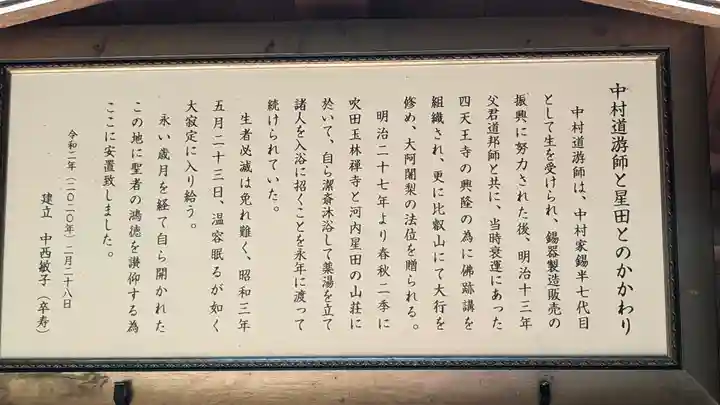 中村道游師と星田とのかかわり
中村道游師は、中村家錫半七代目
として生を受けられ、錫器製造販売の
振興に努力された後、明治十三年
父君道邦師と共に、当時衰運にあった
四天王寺の興隆の為に佛跡講を
組織され、更に比叡山にて大行を
修め、大阿闍梨の法位を贈られる。
明治二十七年より春秋二季に
吹田玉林禅寺と河内星田の山荘に
於いて、自ら潔斎沐浴して薬湯を立て
諸人を入浴に招くことを永年に渡って
続けられていた。
生者必滅は免れ難く、昭和三年
五月二十三日、温容眠るが如く
大寂定に入り給う。
永い歳月を経て自ら開かれた
この地に聖者の鴻徳を讃仰する為
ここに安置致しました。
令和二年（二〇二〇年）二月二十八日
建立　中西敏子（卒寿）